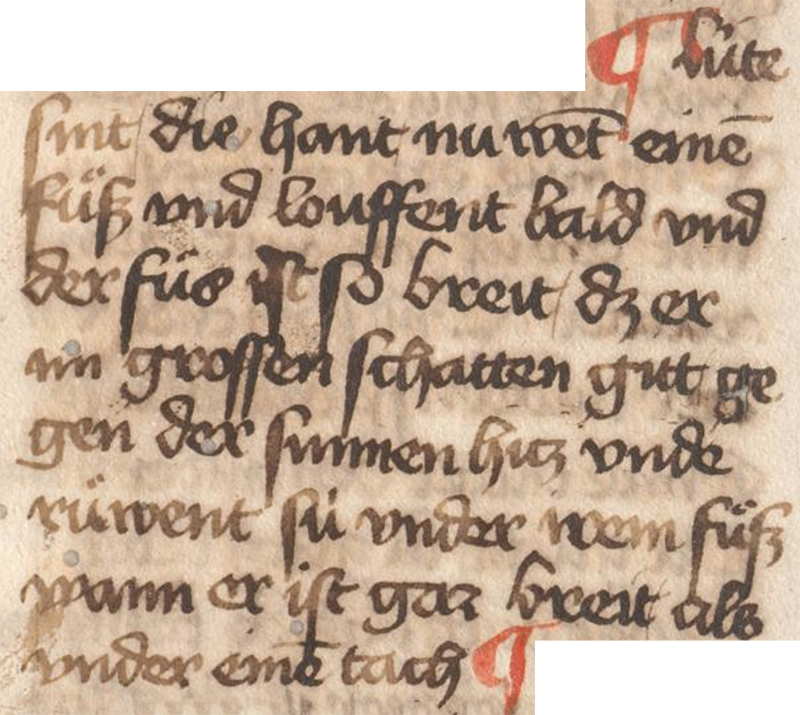 ¶ lüte
sint die hant nuwet̄ einē
füsz vnd louffent bald vnd
der füs ist so breit / dz er
im grossen schatten gitt ge
gen der sunnen hitz vnde
rüwent sü vnder irem füsz
wann er ist gar breit als
vnder einē tach ¶